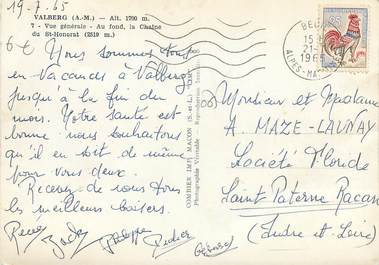 19.7.65
VALBERG (A.-M.) - Alt. 1700 m.
7 - Vue générale - Au fond, la Chaîne
du St-Honorat (2519 m.)
Nous sommes tous
en Vacances à Valberg
jusqu'à la fin du
mois. Notre santé est
bonne nous souhaitons
qu'il en soit de même
pour vous deux.
Recevez de nous tous
les meilleurs baisers.
René Jack Philippe Didier
COMBIER IMP. MACON (S.-et-L.) "CIM"
Photographie Véritable - Reproduction Interdite
15
21-
1965
ALPES-MA
Monsieur et Madame
A. MAZE-LAUNAY
Société Floride
Saint Paterne Racan
(Indre et Loire)